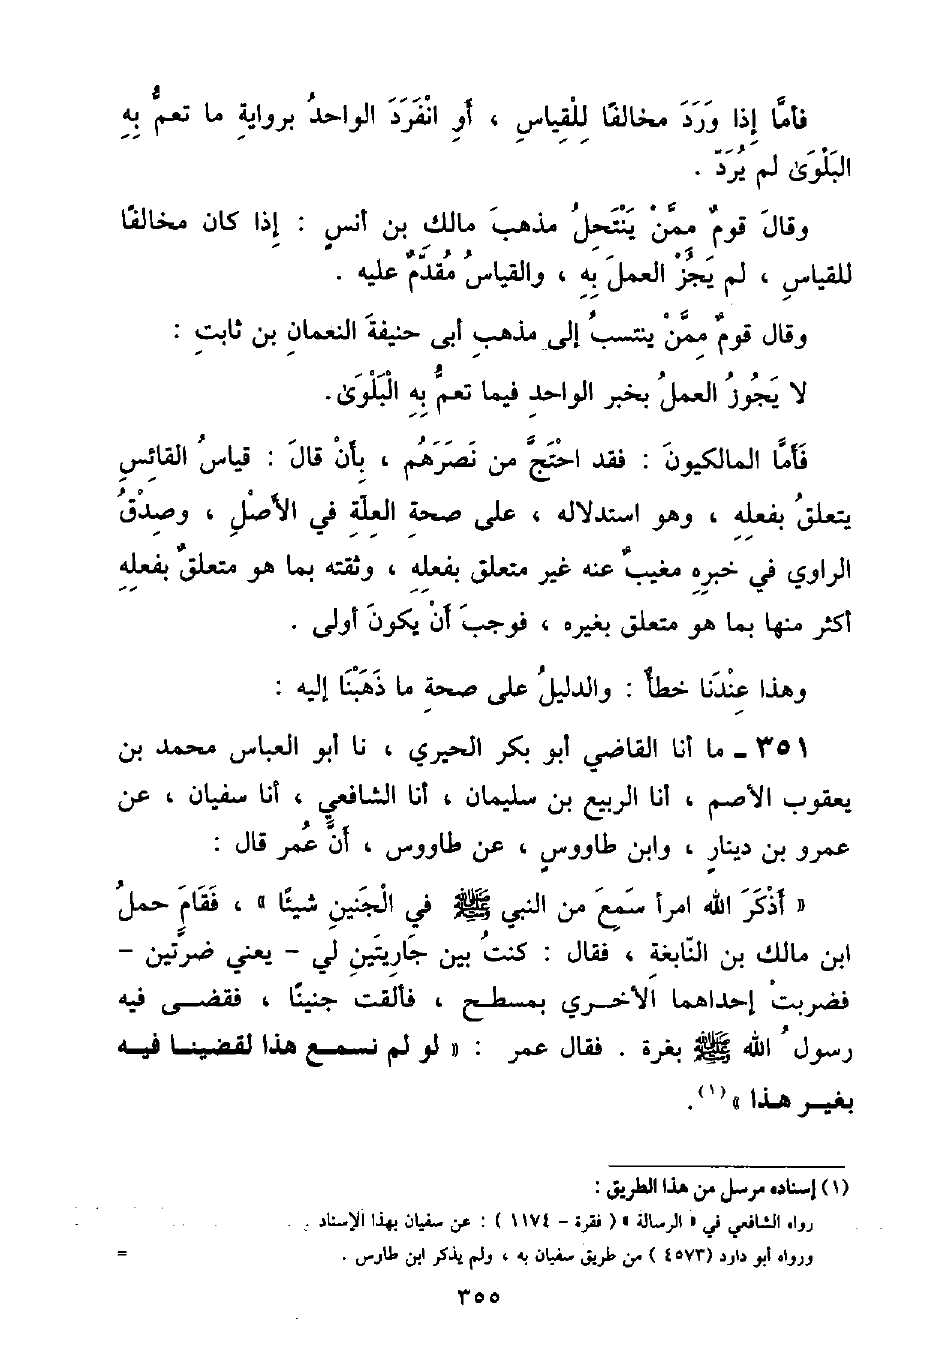 فأمَّا إِذا وَرَدَ مخالفًا لِلْقياسِ ، أَوِ انْفَرَدَ الواحدُ بروايةِ ما تعمُّ بِهِ
البَلْوَىٰ لم يُرَدّ .
وقالَ قومٌ ممَّنْ يَنْتَحِلُ مذهبَ مالك بن أنسٍ : إذا كان مخالفًا
للقياسِ ، لم يَجُزْ العملَ بِهِ ، والقياسُ مُقدَّمٌ عليه .
وقال قومٌ ممَّنْ ينتسبُ إلى مذهبِ أبى حنيفةَ النعمانِ بن ثابتِ :
لا يَجُوزُ العملُ بخبر الواحدِ فيما تعمُّ بِهِ الْبَلْوَىٰ.
فَأمَّا المالكيونَ : فقد احْتَجَّ من نَصَرَهُم ، بِأنْ قالَ : قياسُ القائسِ
يتعلقُ بفعلِهِ ، وهو استدلاله ، على صحةِ العلّةِ في الأصْلِ ، وصِدْقُ
الراوي في خبرِه مغيبٌ عنه غير متعلق بفعلِهِ ، وثقته بما هو متعلقٌ بفعلِهِ
أكثر منها بما هو متعلق بغيره ، فوجبَ أنْ يكونَ أولى .
وهذا عِنْدَنا خطأ : والدليلُ على صحةِ ما ذَهَبْنَا إليه :
٣٥١ ـ ما أنا القاضي أبو بكر الحيري ، نا أبو العباس محمد بن
يعقوب الأصم ، أنا الربيع بن سليمان ، أنا الشافعي ، أنا سفيان ، عن
عمرو بن دينارٍ ، وابن طاووسٍ ، عن طاووس ، أنَّ عُمر قال :
« أذْكَرَ اللهَ امرأ سَمِعَ من النبي ﷺ في الْجَنينِ شيئًا » ، فَقَامَ حملُ
ابن مالك بن النّابغة ، فقال : كنتُ بين جَارِيتَينِ لي - يعني ضرّتين -
فضربتْ إحداهما الأخري بمسطح ، فألقت جنينًا ، فقضى فيه
رسولُ الله ﷺ بغرة . فقال عمر : « لو لم نسمع هذا لقضينا فيه
بغير هذا »(١).
(١) إسناده مرسل من هذا الطريق :
رواه الشافعي في « الرسالة » ( فقرة - ١١٧٤ ) : عن سفيان بهذا الإسناد .
ورواه أبو داود (٤٥٧٣ ) من طريق سفيان به ، ولم يذكر ابن طاوس . =
٣٥٥